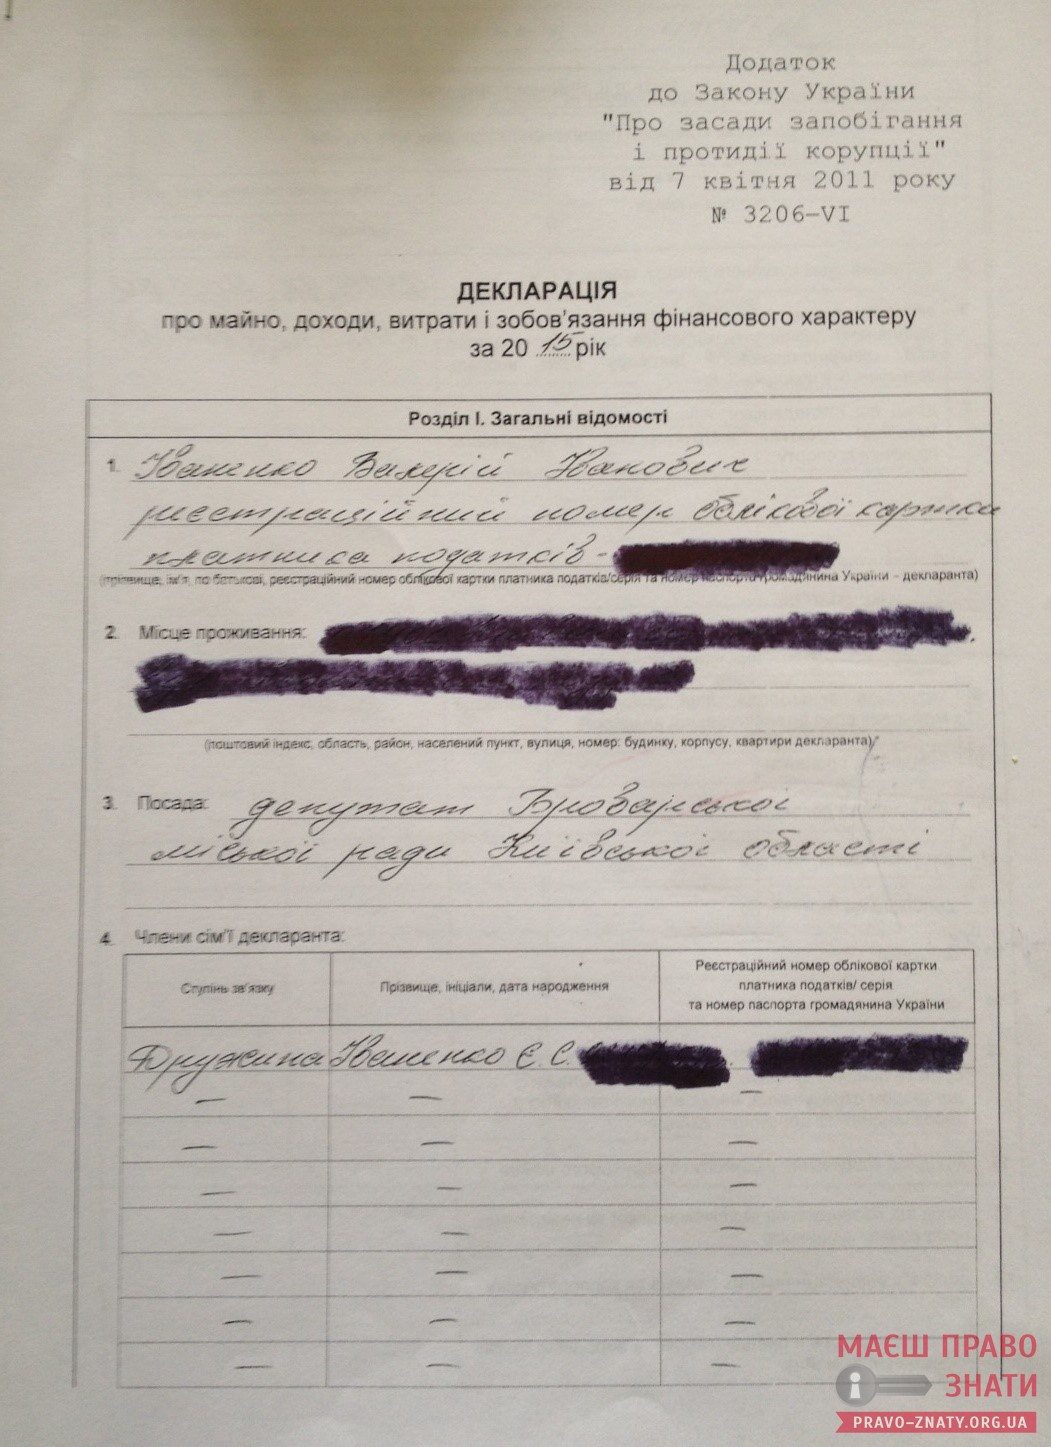 Додаток
до Закону України
"Про засади запобігання
і протидії корупції"
від 7 квітня 2011 року
№ 3206-VI
ДЕКЛАРАЦІЯ
про майно, доходи, витрати і зобов'язання фінансового характеру
за 20 15 рік
Розділ I. Загальні відомості
1. Іваненко Валерій Іванович
реєстраційний номер облікової картки
платника податків -
(прізвище, ім'я, по батькові, реєстраційний номер облікової картки платника податків/серія та номер паспорта громадянина України – декларанта)
2. Місце проживання:
(поштовий індекс, область, район, населений пункт, вулиця, номер: будинку, корпусу, квартири декларанта)
3. Посада: депутат Броварської
міської ради Київської області
4. Члени сім'ї декларанта:
Ступінь зв'язку
Прізвище, ініціали, дата народження
Реєстраційний номер облікової картки
платника податків/ серія
та номер паспорта громадянина України
Дружина Іваненко Є. С.
— — —
— — —
— — —
— — —
— — —
— — —
— — —
МАЄШ ПРАВО
ЗНАТИ
PRAVO-ZNATY.ORG.UA